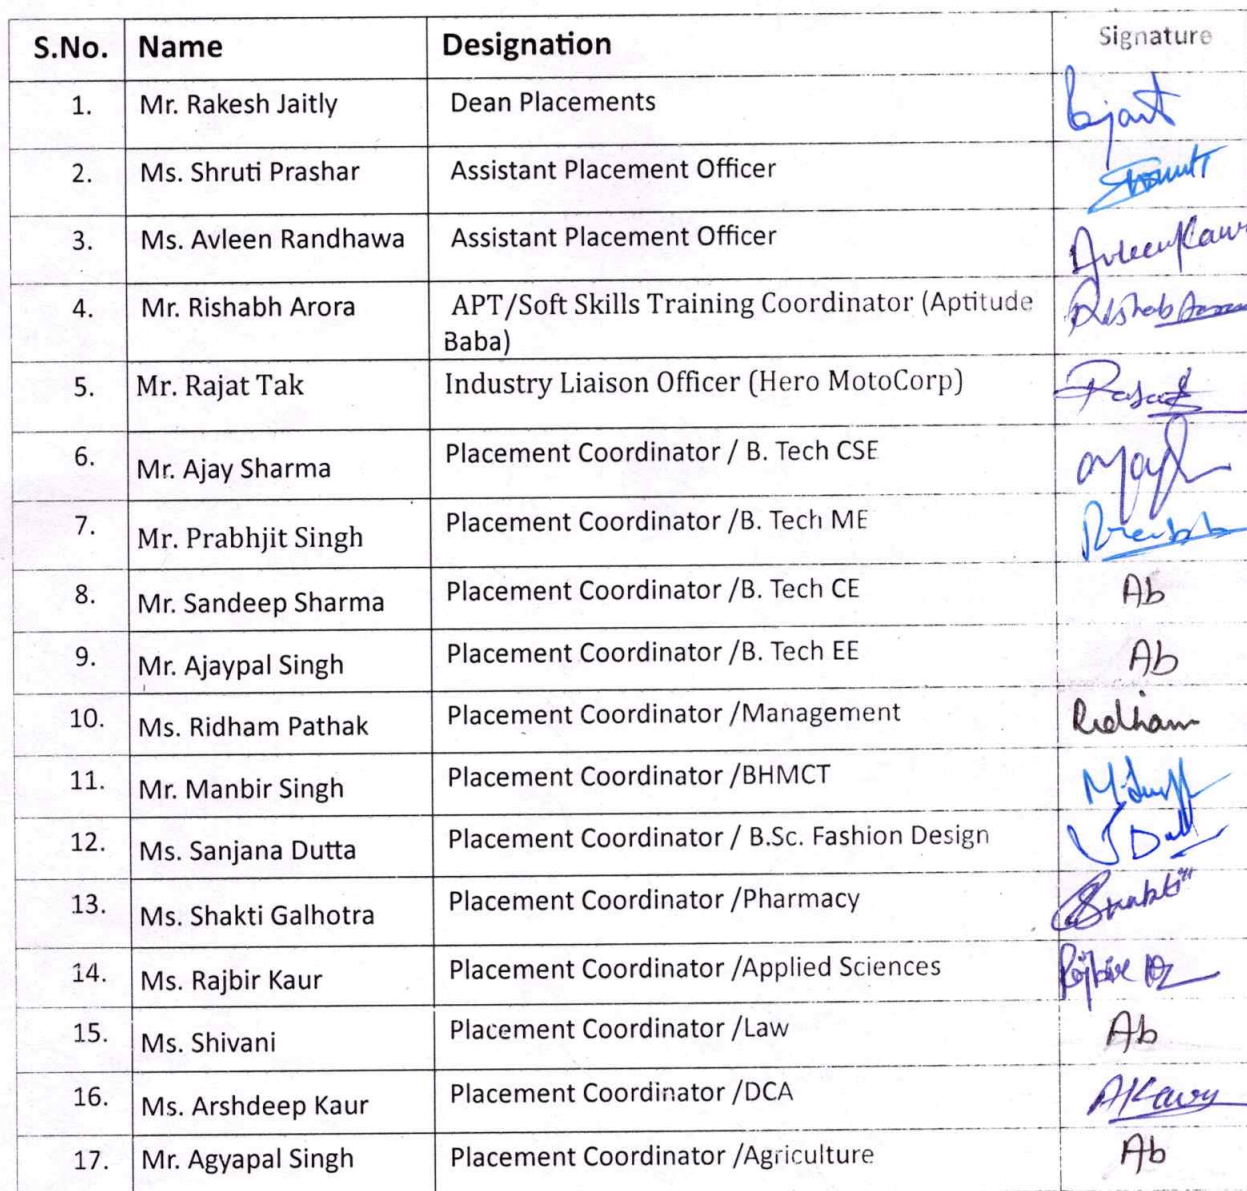 S.No. Name Designation Signature
1. Mr. Rakesh Jaitly Dean Placements
2. Ms. Shruti Prashar Assistant Placement Officer
3. Ms. Avleen Randhawa Assistant Placement Officer AvleenKaur
4. Mr. Rishabh Arora APT/Soft Skills Training Coordinator (Aptitude
Baba)
5. Mr. Rajat Tak Industry Liaison Officer (Hero MotoCorp)
6. Mr. Ajay Sharma Placement Coordinator / B. Tech CSE
7. Mr. Prabhjit Singh Placement Coordinator /B. Tech ME
8. Mr. Sandeep Sharma Placement Coordinator /B. Tech CE Ab
9. Mr. Ajaypal Singh Placement Coordinator /B. Tech EE Ab
10. Ms. Ridham Pathak Placement Coordinator /Management Ridham
11. Mr. Manbir Singh Placement Coordinator /BHMCT
12. Ms. Sanjana Dutta Placement Coordinator / B.Sc. Fashion Design
13. Ms. Shakti Galhotra Placement Coordinator /Pharmacy Shakti
14. Ms. Rajbir Kaur Placement Coordinator /Applied Sciences
15. Ms. Shivani Placement Coordinator /Law Ab
16. Ms. Arshdeep Kaur Placement Coordinator /DCA AKaur
17. Mr. Agyapal Singh Placement Coordinator /Agriculture Ab